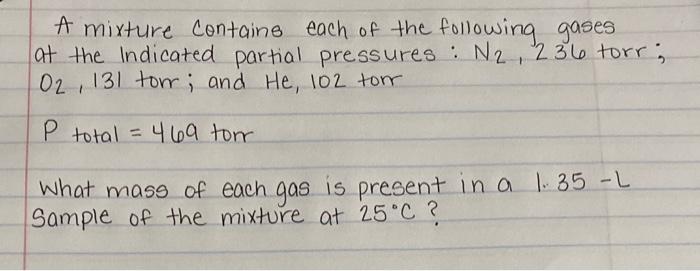 A mixture contains each of the following gases
at the Indicated partial pressures : N2, 236 torr;
O2, 131 torr; and He, 102 torr
P total = 469 torr
What mass of each gas is present in a 1.35 -L
Sample of the mixture at 25°C ?